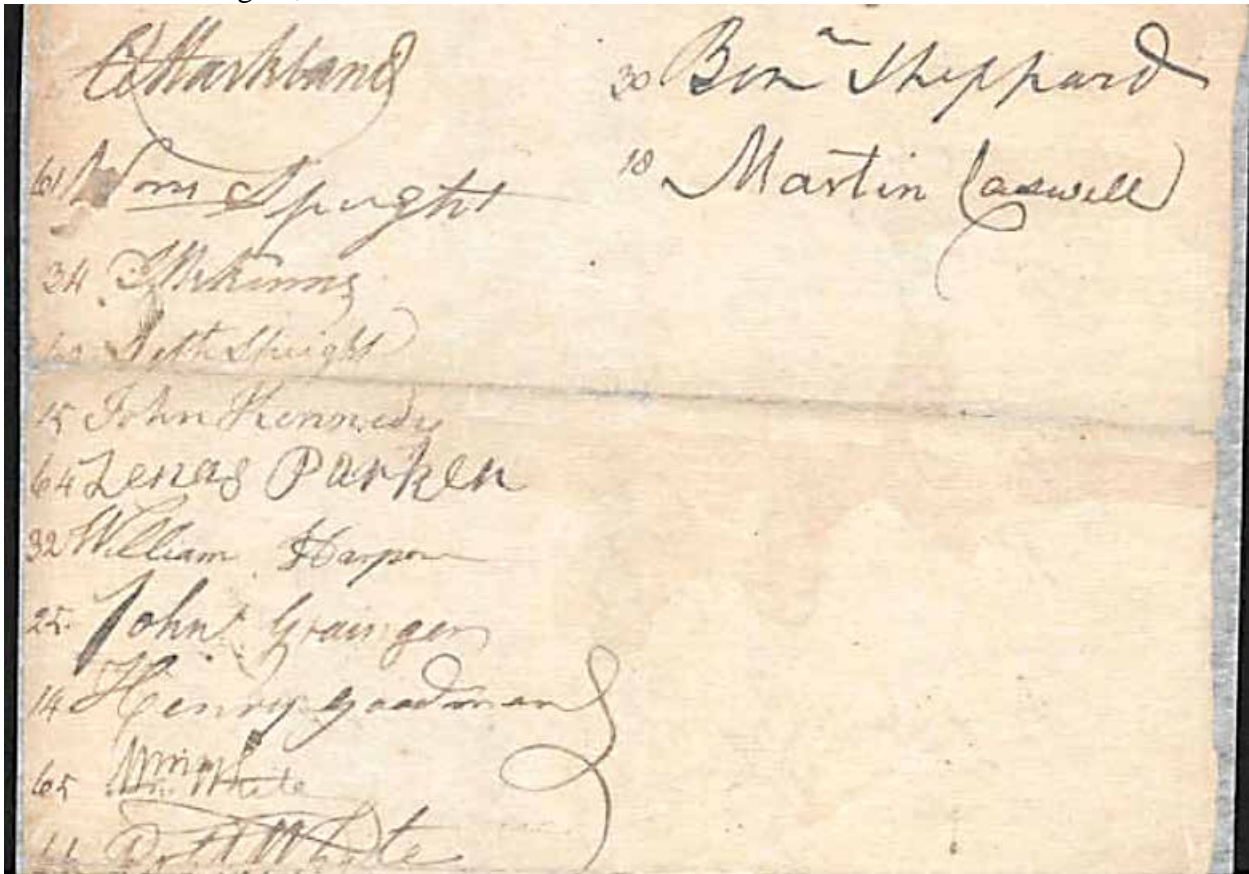 Markland
61 Wm Speight
34
Seth Speight
15 John Kennedy
64 Zenas Parker
32 William Harper
25. John Grainger
14 Henry goodman
65 Wm White
White
30 Benn Sheppard
18 Martin Caswell